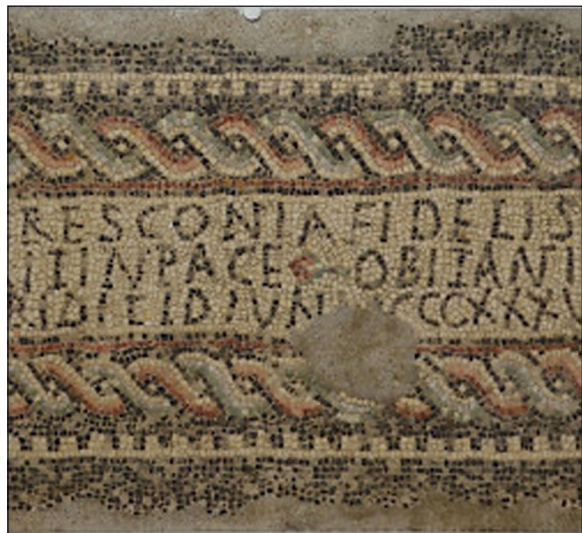 RESCONIA FIDELIS
III IN PACE OBIIT ANI
RIDIE ID IVN CCCXXXV